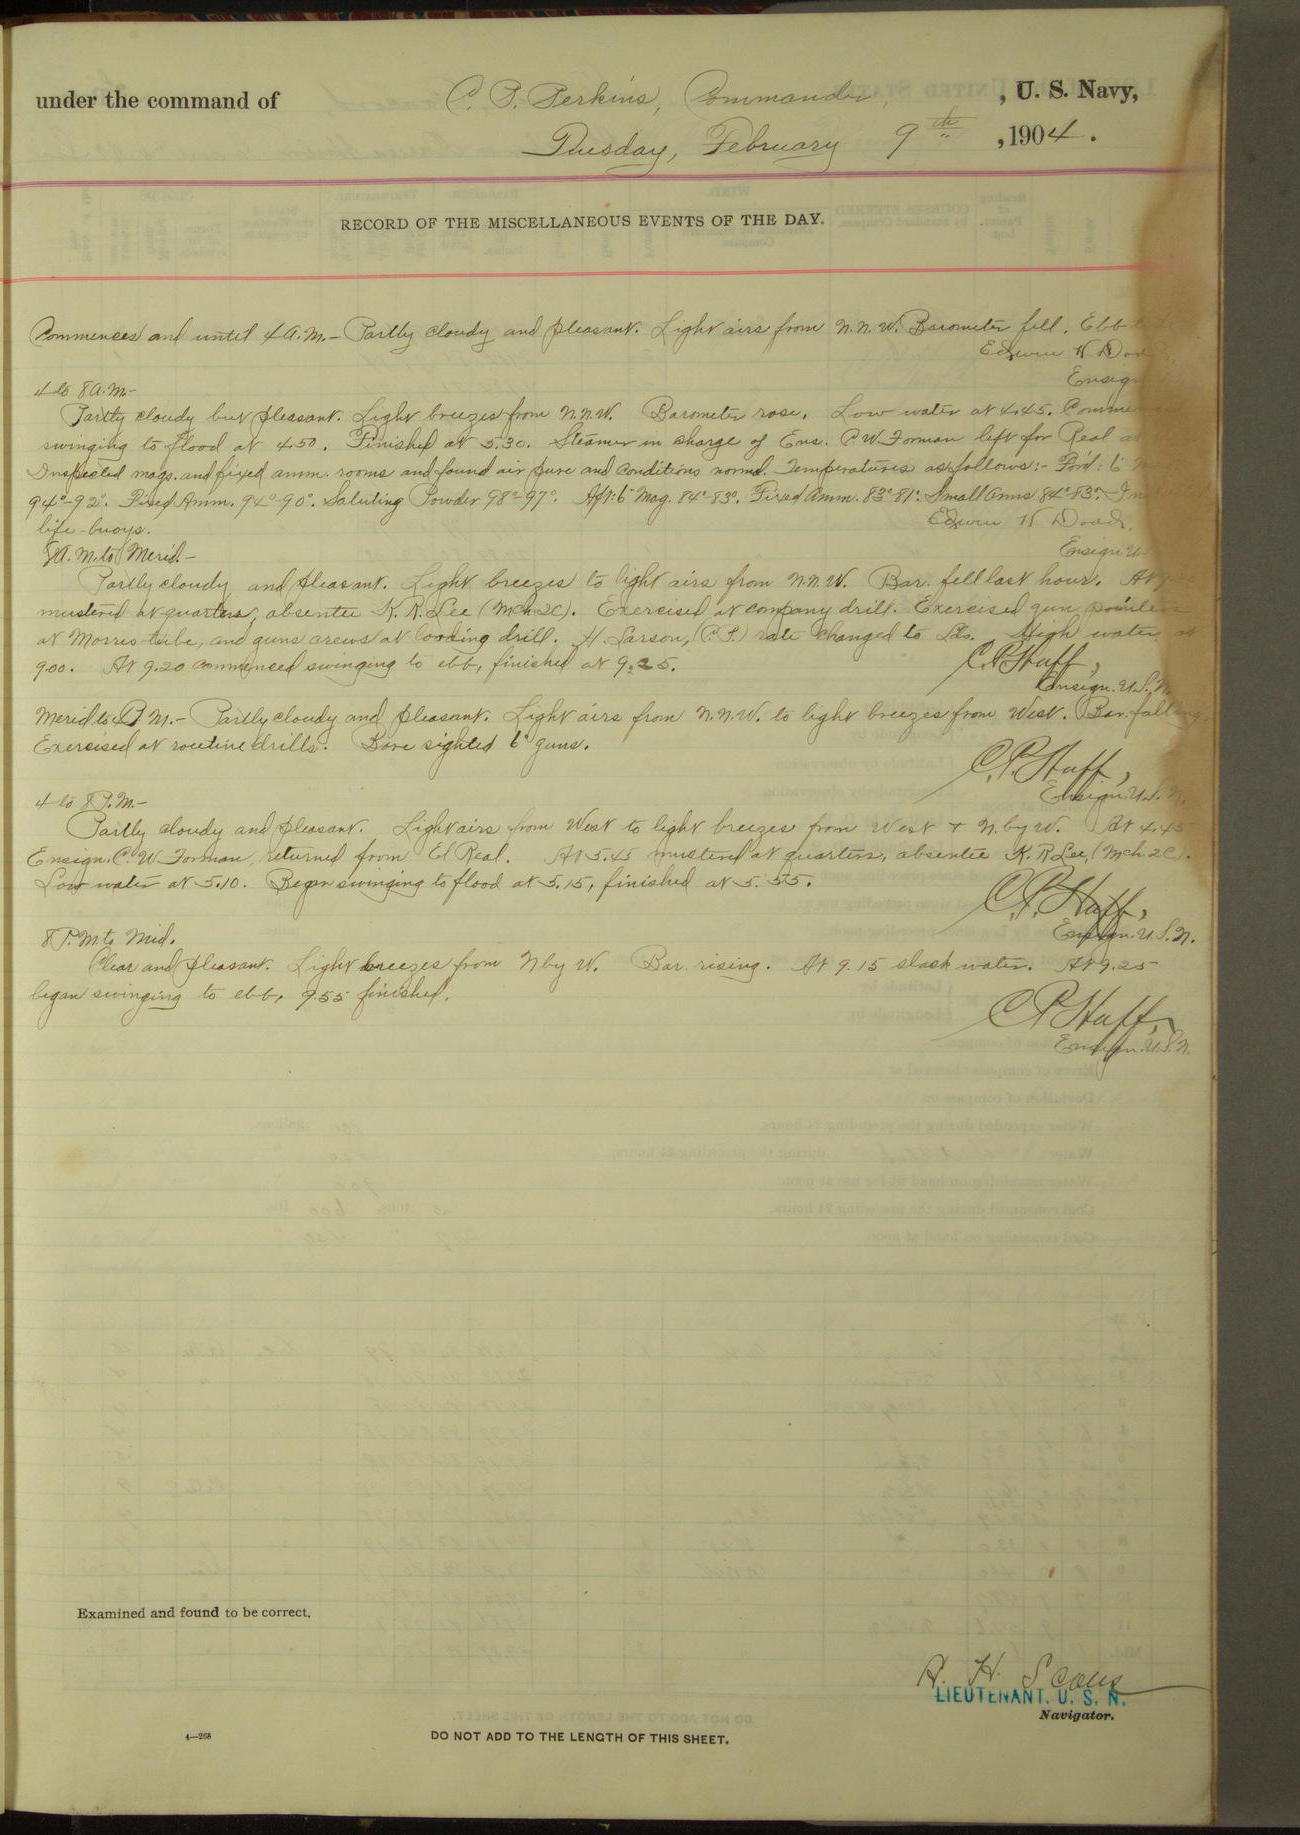 under the command of C. P. Perkins, Commander, , U. S. Navy,
Tuesday, February 9th , 1904.
RECORD OF THE MISCELLANEOUS EVENTS OF THE DAY.
Commences and until 4 A.M.- Partly cloudy and pleasant. Light airs from N.N.W. Barometer fell. Ebb
Edwin H Dodd
Ensign
4 to 8 A.M.-
Partly cloudy but pleasant. Light breezes from N.N.W. Barometer rose. Low water at 4.45. Comme
swinging to flood at 4.50. Finished at 5.30. Steamer in charge of Ens. C W Forman left for Real at
Inspected mags. and fixed amm. rooms and found air pure and conditions normal. Temperatures as follows:- For'd: 6"
94°-92°. Fixed Amm. 94°-90°. Saluting Powder 98°-97°. Aft: 6" Mag. 84°-83°. Fixed Amm. 83°-81°. Small Arms 84°-83°.
life-buoys. Edwin H Dodd,
8 A.M. to Merid.- Ensign U
Partly cloudy and pleasant. Light breezes to light airs from N.N.W. Bar. fell last hour. At
mustered at quarters, absentee K. R. Lee (Mch. 2C). Exercised at company drill. Exercised gun pointers
at Morris tube, and guns crews at loading drill. H. Larson, (C.P.) rate changed to Lds. High water at
9.00. At 9.20 commenced swinging to ebb, finished at 9.25. C.P. Huff,
Ensign. U.S.N.
Merid. to 4 P.M.- Partly cloudy and pleasant. Light airs from N.N.W. to light breezes from West. Bar. falling.
Exercised at routine drills. Bore sighted 6" guns.
C.P. Huff,
Ensign. U.S.N.
4 to 8 P.M.-
Partly cloudy and pleasant. Light airs from West to light breezes from West + N. by W. At 4.45
Ensign. C. W Forman, returned from El Real. At 5.45 mustered at quarters, absentee K. R Lee, (Mch. 2C).
Low water at 5.10. Began swinging to flood at 5.15, finished at 5.55.
C.P. Huff,
Ensign. U.S.N.
8 P.M. to Mid.
Clear and pleasant. Light breezes from N by W. Bar. rising. At 9.15 slack water. At 9.25
began swinging to ebb, 9.55 finished.
C P Huff,
Ensign. U.S.N.
Examined and found to be correct.
A. H. Scales
LIEUTENANT. U. S. N.
Navigator.
4—268
DO NOT ADD TO THE LENGTH OF THIS SHEET.